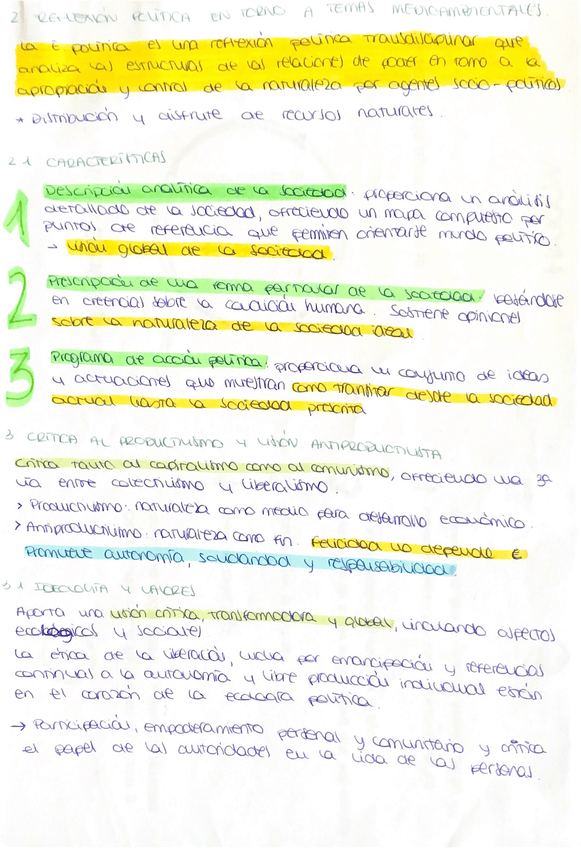 2 REFLEXIÓN POLÍTICA EN TORNO A TEMAS MEDIOAMBIENTALES.
La E política es una reflexión política transdisciplinar que
analiza las estructuras de las relaciones de poder en torno a la
apropiación y control de la naturaleza por agentes socio-políticos
* Distribución y disfrute de recursos naturales.
2.1 CARACTERÍSTICAS
1 Descripción analítica de la sociedad: proporciona un análisis
detallado de la sociedad, ofreciendo un mapa compuesto por
puntos de referencia que permiten orientarse mundo político.
→ Visión global de la sociedad.
2 Prescripción de una forma particular de la sociedad: basándose
en creencias sobre la condición humana. Sostiene opiniones
sobre la naturaleza de la sociedad ideal
3 Programa de acción política: proporciona un conjunto de ideas
y actuaciones que muestran como transitar desde la sociedad
actual hasta la sociedad prescrita
3 CRÍTICA AL PRODUCTIVISMO Y VISIÓN ANTIPRODUCTIVISTA
Crítica tanto al capitalismo como al comunismo, ofreciendo una 3ª
vía entre colectivismo y liberalismo.
> Productivismo: naturaleza como medio para desarrollo económico.
> Antiproductivismo: naturaleza como fin. Felicidad no depende €
Promueve autonomía, solidaridad y responsabilidad.
3.1 IDEOLOGÍA Y VALORES
Aporta una visión crítica, transformadora y global, vinculando aspectos
ecológicos y sociales
La ética de la liberación, lucha por emancipación y referencias
continuas a la autonomía y libre producción individual están
en el corazón de la ecología política.
→ Participación, empoderamiento personal y comunitario y crítica
el papel de las autoridades en la vida de las personas.